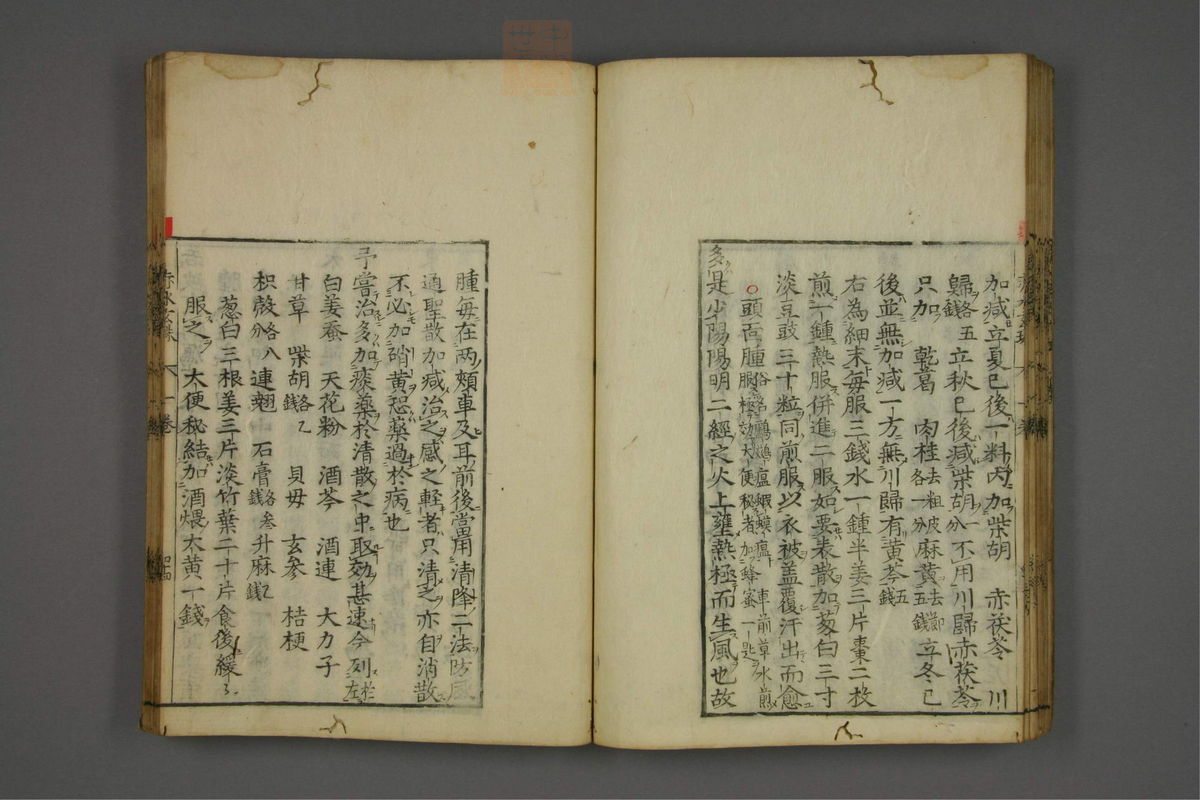 加減立夏已後一料內加柴胡 赤茯苓 川
歸各五錢立秋已後減柴胡一分不用川歸赤茯苓
只加 乾葛 肉桂去粗皮各一分麻黃去節五錢立冬已
後並無加減一方無川歸有黃芩五錢
右為細末每服三錢水一鍾半姜三片棗二枚
煎一鍾熱服併進二服如要表散加葱白三寸
淡豆豉三十粒同煎服以衣被盖覆汗出而愈
○頭面腫俗名鸕鷀瘟蝦蟆瘟車前草水煎服極効大便秘者加蜂蜜一匙
多是少陽陽明二經之火上壅熱極而生風也故
腫每在两頰車及耳前後當用清降二法防風
通聖散加減治之感之軽者只清之亦自消散
不必加硝黃恐藥過於病也
予嘗治多加痰藥於清散之中取効甚速今列於左
白姜蚕 天花粉 酒芩 酒連 大力子
甘草 柴胡各一錢 貝毋 玄參 桔梗
枳殼各八分連翹 石膏各三錢升麻一錢
葱白三根姜三片淡竹葉二十片食後緩々
服之 大便秘結加酒煨大黃一錢
一卷